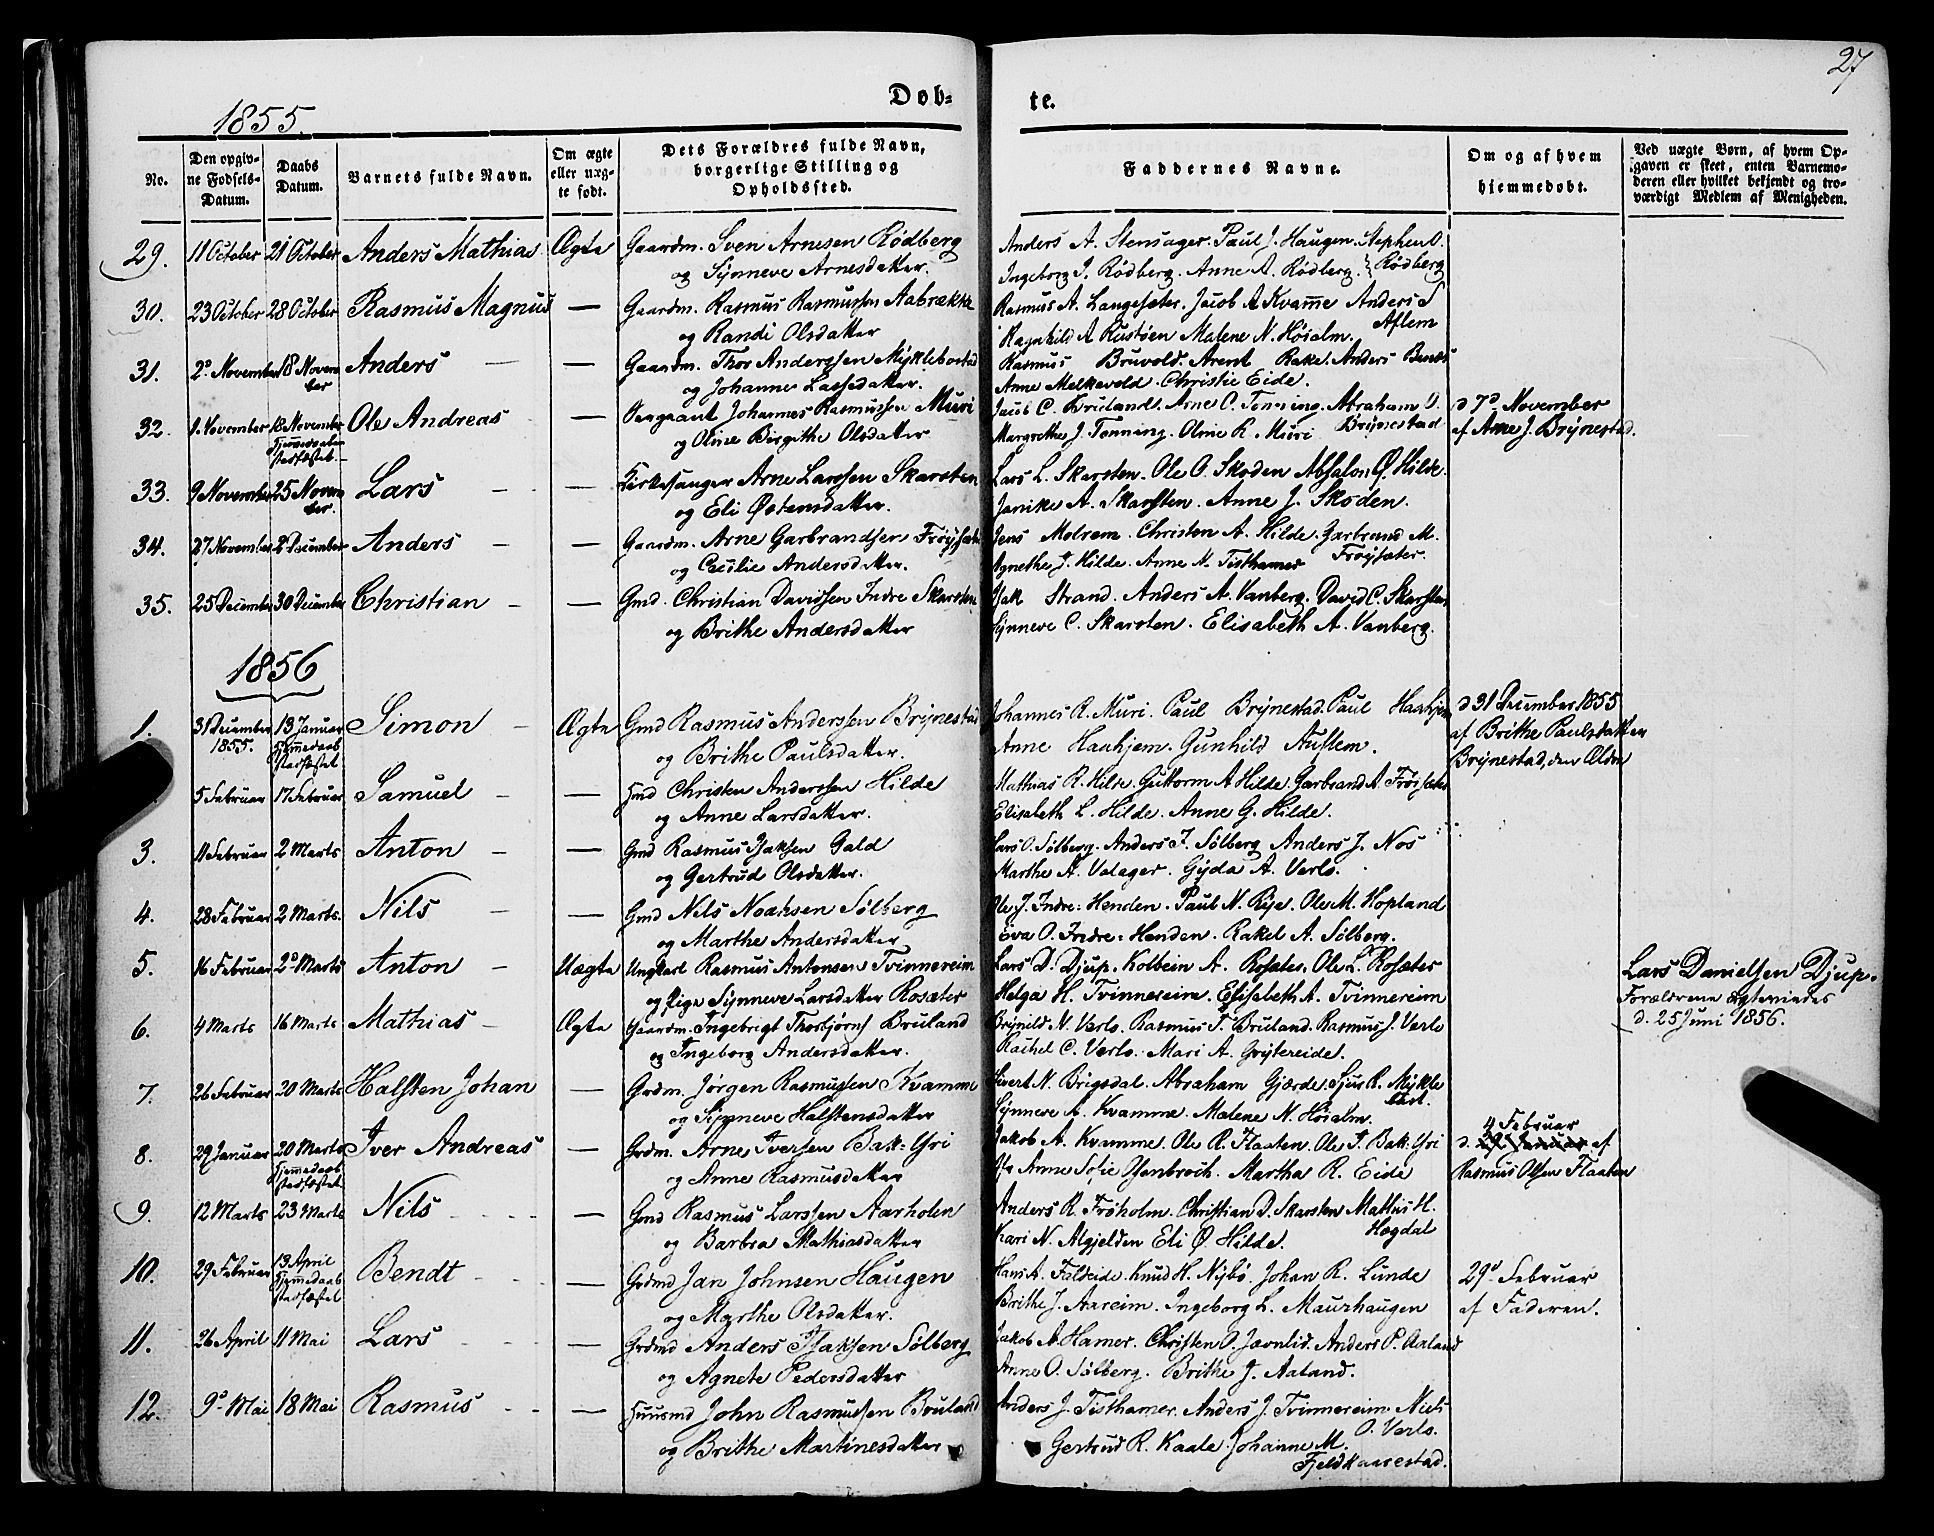 27
1855.
Døb-
te.
No.
Den opgiv-
ne Fødsels-
Datum.
Daabs
Datum.
Barnets fulde Navn.
Om ægte
eller uæg-
te født.
Dets Forældres fulde Navn,
borgerlige Stilling og
Opholdssted.
Faddernes Navne.
Om og af hvem
hjemmedøbt.
Ved uægte Børn, af hvem Op-
gaven er skeet, enten Barnemo-
deren eller hvilket bekjendt og tro-
værdigt Medlem af Menigheden.
29. 11 October 21 October Anders Mathias Ægte Gaardm. Sven Arnesen Rødberg Anders A. Stensager. Paul J. Haugen. Stephen O.
og Synneve Arnesdatter. Ingeborg J. Rødberg. Anne A. Rødberg. Rødberg
30. 23 October 28 October Rasmus Magnus — Gaardm. Rasmus Rasmussen Aabrække Rasmus A. Langesæter. Jacob A Kvamme Anders S
og Randi Olsdatter Ragnhild A Rustøen Malene N. Høialm. Aflem
31. 2d November 18 Novem Anders — — Gaardm. Thor Anderssen Myklebostad Rasmus Bruvold. Arent Rake. Anders Benæs
ber og Johanne Lassedatter. Anne Melkevold. Christie Eide.
32. 1. November 18 November Ole Andreas — Sergeant Johannes Rasmussen Muri Jacob C. Bruland. Arne O. Tonning. Abraham O. d 7d November
Hjemmedaab
stadfæstet og Oline Birgithe Olsdatter Margrethe J. Tonning. Oline R. Muri Brynestad af Arne J. Brynestad.
33. 9 November 25 Novem Lars — — Kirkesanger Arne Larssen Skarsten Lars L. Skarsten. Ole O. Skoden Absalon Ø. Hilde.
ber. og Eli Østensdatter. Janike A. Skarsten. Anne J. Skoden.
34. 27 November 2 December Anders — — Gaardm. Arne Garbrandsen Frøysæter Jens Melrem. Christen A. Hilde. Garbrand M.
og Cecilie Andersdatter. Agnethe J. Hilde. Anne N. Tisthamer Frøysæter.
35. 25 December 30 December Christian — — Gmd. Christian Davidsen Indre Skarsten Isak Strand. Anders A. Vanberg. David C. Skarsten
og Brithe Andersdatter Synneve C. Skarsten. Elisabeth A. Vanberg.
1856
1. 31 December 13 Januar Simon — Ægte Gmd Rasmus Anderssen Brynestad Johannes R. Muri. Paul Brynestad. Paul Haahjem d 31 December 1855
1855. Hjemmedaab
stadfæstet og Brithe Paulsdatter. Anne Haahjem. Gunhild Auflem. af Brithe Paulsdatter
Brynestad, den Olden
5 Februar 17 Februar Samuel — — Gmd Christen Anderssen Hilde Mathias R. Hilde. Guttorm A Hilde. Garbrand A. Frøisæter
og Anne Larsdatter. Elisabeth L. Hilde. Anne G. Hilde.
3. 11 Februar 2 Marts Anton — — Gmd Rasmus Isaksen Gald Lars O. Sølberg. Anders J. Sølberg Anders J. Nos
og Gertrud Olsdatter. Marthe A. Valager. Gyda A. Verlo.
4. 28 Februar 2 Marts. Nils — — Gmd Nils Noahsen Sølberg Ole J. Indre-Henden. Paul N. Rye. Ole M. Hopland
og Marthe Andersdatter Eva O. Indre-Henden. Rakel A. Sølberg.
5. 16 Februar 2d Marts Anton — Uægte Ungkarl Rasmus Antonsen Tvinnereim Lars D. Djup. Kolbein A. Rosæter. Ole L. Rosæter Lars Danielsen Djup.
og Pige Synneve Larsdatter Rosæter Helga H. Tvinnereim. Elisabeth A. Tvinnereim Forældrene ægteviedes
d. 25 Juni 1856.
6. 4 Marts 16 Marts Mathias — Ægte Gaardm. Ingebrigt Thorbjørns Bruland Brynild N. Verlo. Rasmus T. Bruland. Rasmus J. Verlo
og Ingeborg Andersdatter. Rachel C. Verlo. Mari A. Grytereide.
7. 26 Februar 20 Marts Halsten Johan — Grdm. Jørgen Rasmussen Kvamme Sivert N. Brigsdal. Abraham Gjærde. Sjur R. Mykle
og Synneve Halstensdatter Synneve A. Kvamme. Malene N. Høialm. bust.
8. 29 Januar 20 Marts Iver Andreas — Grdm. Arne Iversen Bak-Yri Jakob A. Kvamme. Ole R. Flaaten. Ole I. Bak-Yri 4 Februar
d. 29 Januar af
Hjemmedaab
stadfæstet og Anne Rasmusdatter Anne Sofie Ysenbroch. Martha R. Eide Rasmus Olsen Flaaten
9. 12 Marts 23 Marts Nils — — Gmd Rasmus Larssen Aarholen Anders R. Frøholm. Christian D. Skarsten Mathis H.
og Barbra Mathiasdatter Kari N. Mgjelden Eli Ø. Hilde. Høgdal
10. 29 Februar 13 April Bendt — — Grdmd Jan Johnsen Haugen Hans A. Faldeide. Knud H. Nybø. Johan R. Lunde 29d Februar
Hjemmedaab
stadfæstet og Marthe Olsdatter. Brithe J. Aareim. Ingeborg L. Maurhaugen af Faderen.
11. 26 April 11 Mai Lars — — Grdmd Anders Isaksen Sølberg Jakob A. Hamer. Christen O. Jævnlid. Anders P. Aaland
og Agnete Pedersdatter Anne O. Sølberg. Brithe J. Aaland.
12. 9d Mai 18 Mai Rasmus — — Huusmd John Rasmussen Bruland Anders J. Tisthamer. Anders J. Tvinnereim. Niels
og Brithe Martinesdatter Gertrud R. Kaale. Johanne M. O. Verlo.
Fjeldkaarestad.